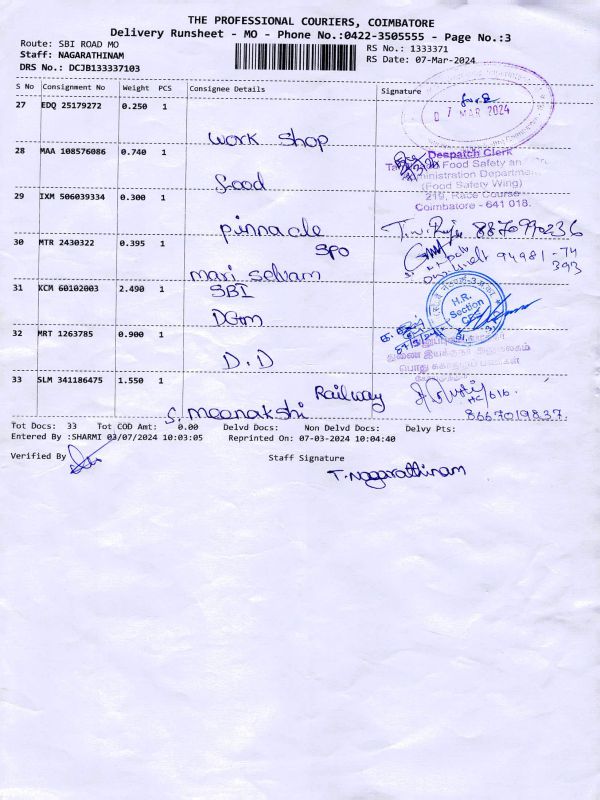 THE PROFESSIONAL COURIERS, COIMBATORE
Delivery Runsheet - MO - Phone No.:0422-3505555 - Page No.:3
Route: SBI ROAD MO
RS No.: 1333371
Staff: NAGARATHINAM
RS Date: 07-Mar-2024
DRS No.: DCJB133337103
S No Consignment No Weight PCS Consignee Details Signature
07 MAR 2024
27 EDQ 25179272 0.250 1
work shop
28 MAA 108576086 0.740 1
Despatch Clerk
Food Safety an
ministration Departm
food
(Food Safety Wing)
29 IXM 506039334 0.300 1
219, Race Course
Coimbatore - 641 018.
pinnacle
8870970236
30 MTR 2430322 0.395 1
spo
94981-74
393
mari selvam
31 KCM 60102003 2.490 1
SBI
H.R.
Section
DGM
32 MRT 1263785 0.900 1
D.D
33 SLM 341186475 1.550 1
Railway
S. Meenakshi
8667019837.
Tot Docs: 33 Tot COD Amt: 0.00 Delvd Docs: Non Delvd Docs: Delvy Pts:
Entered By :SHARMI 03/07/2024 10:03:05 Reprinted On: 07-03-2024 10:04:40
Verified By
Staff Signature
T. Nagarathinam